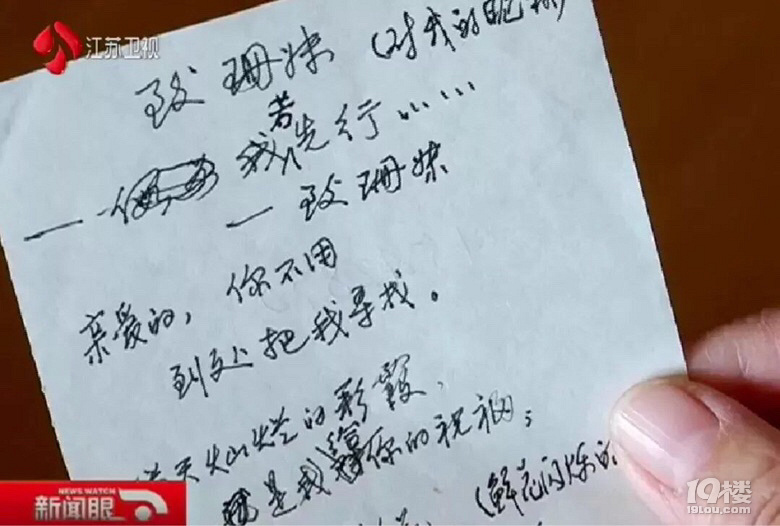 江苏卫视
致珊妹（对我的昵称）
我若先行……
— 致珊妹
亲爱的，你不用
到处把我寻找。
满天灿烂的彩霞，
就是我给你的祝福；
（鲜花闪烁的
NEWS WATCH
新闻眼
19楼
19lou.com